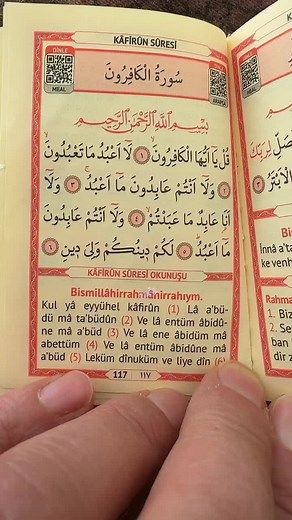 KÂFİRÛN SÛRESİ
DİNLE
MEAL
سُورَةُ الْكَافِرُونَ
بِسْمِ اللّٰهِ الرَّحْمٰنِ الرَّحِيمِ
قُلْ يَٓا اَيُّهَا الْكَافِرُونَۙ ﴿١﴾ لَٓا اَعْبُدُ مَا تَعْبُدُونَۙ
﴿٢﴾ وَلَٓا اَنْتُمْ عَابِدُونَ مَٓا اَعْبُدُۚ ﴿٣﴾ وَلَٓا
اَنَا۬ عَابِدٌ مَا عَبَدْتُمْۙ ﴿٤﴾ وَلَٓا اَنْتُمْ عَابِدُونَ
مَٓا اَعْبُدُۜ ﴿٥﴾ لَكُمْ دِينُكُمْ وَلِيَ دِينِ ﴿٦﴾
KÂFİRÛN SÛRESİ OKUNUŞU
Bismillâhirrahmânirrahıym.
Kul yâ eyyühel kâfirûn (1) Lâ a'bü-
dü mâ ta'büdûn (2) Ve lâ entüm âbidû-
ne mâ a'büd (3) Ve lâ ene âbidüm mâ
abettüm (4) Ve lâ entüm âbidûne mâ
a'büd (5) Leküm dînuküm ve liye dîn (6)
117 ١١٧